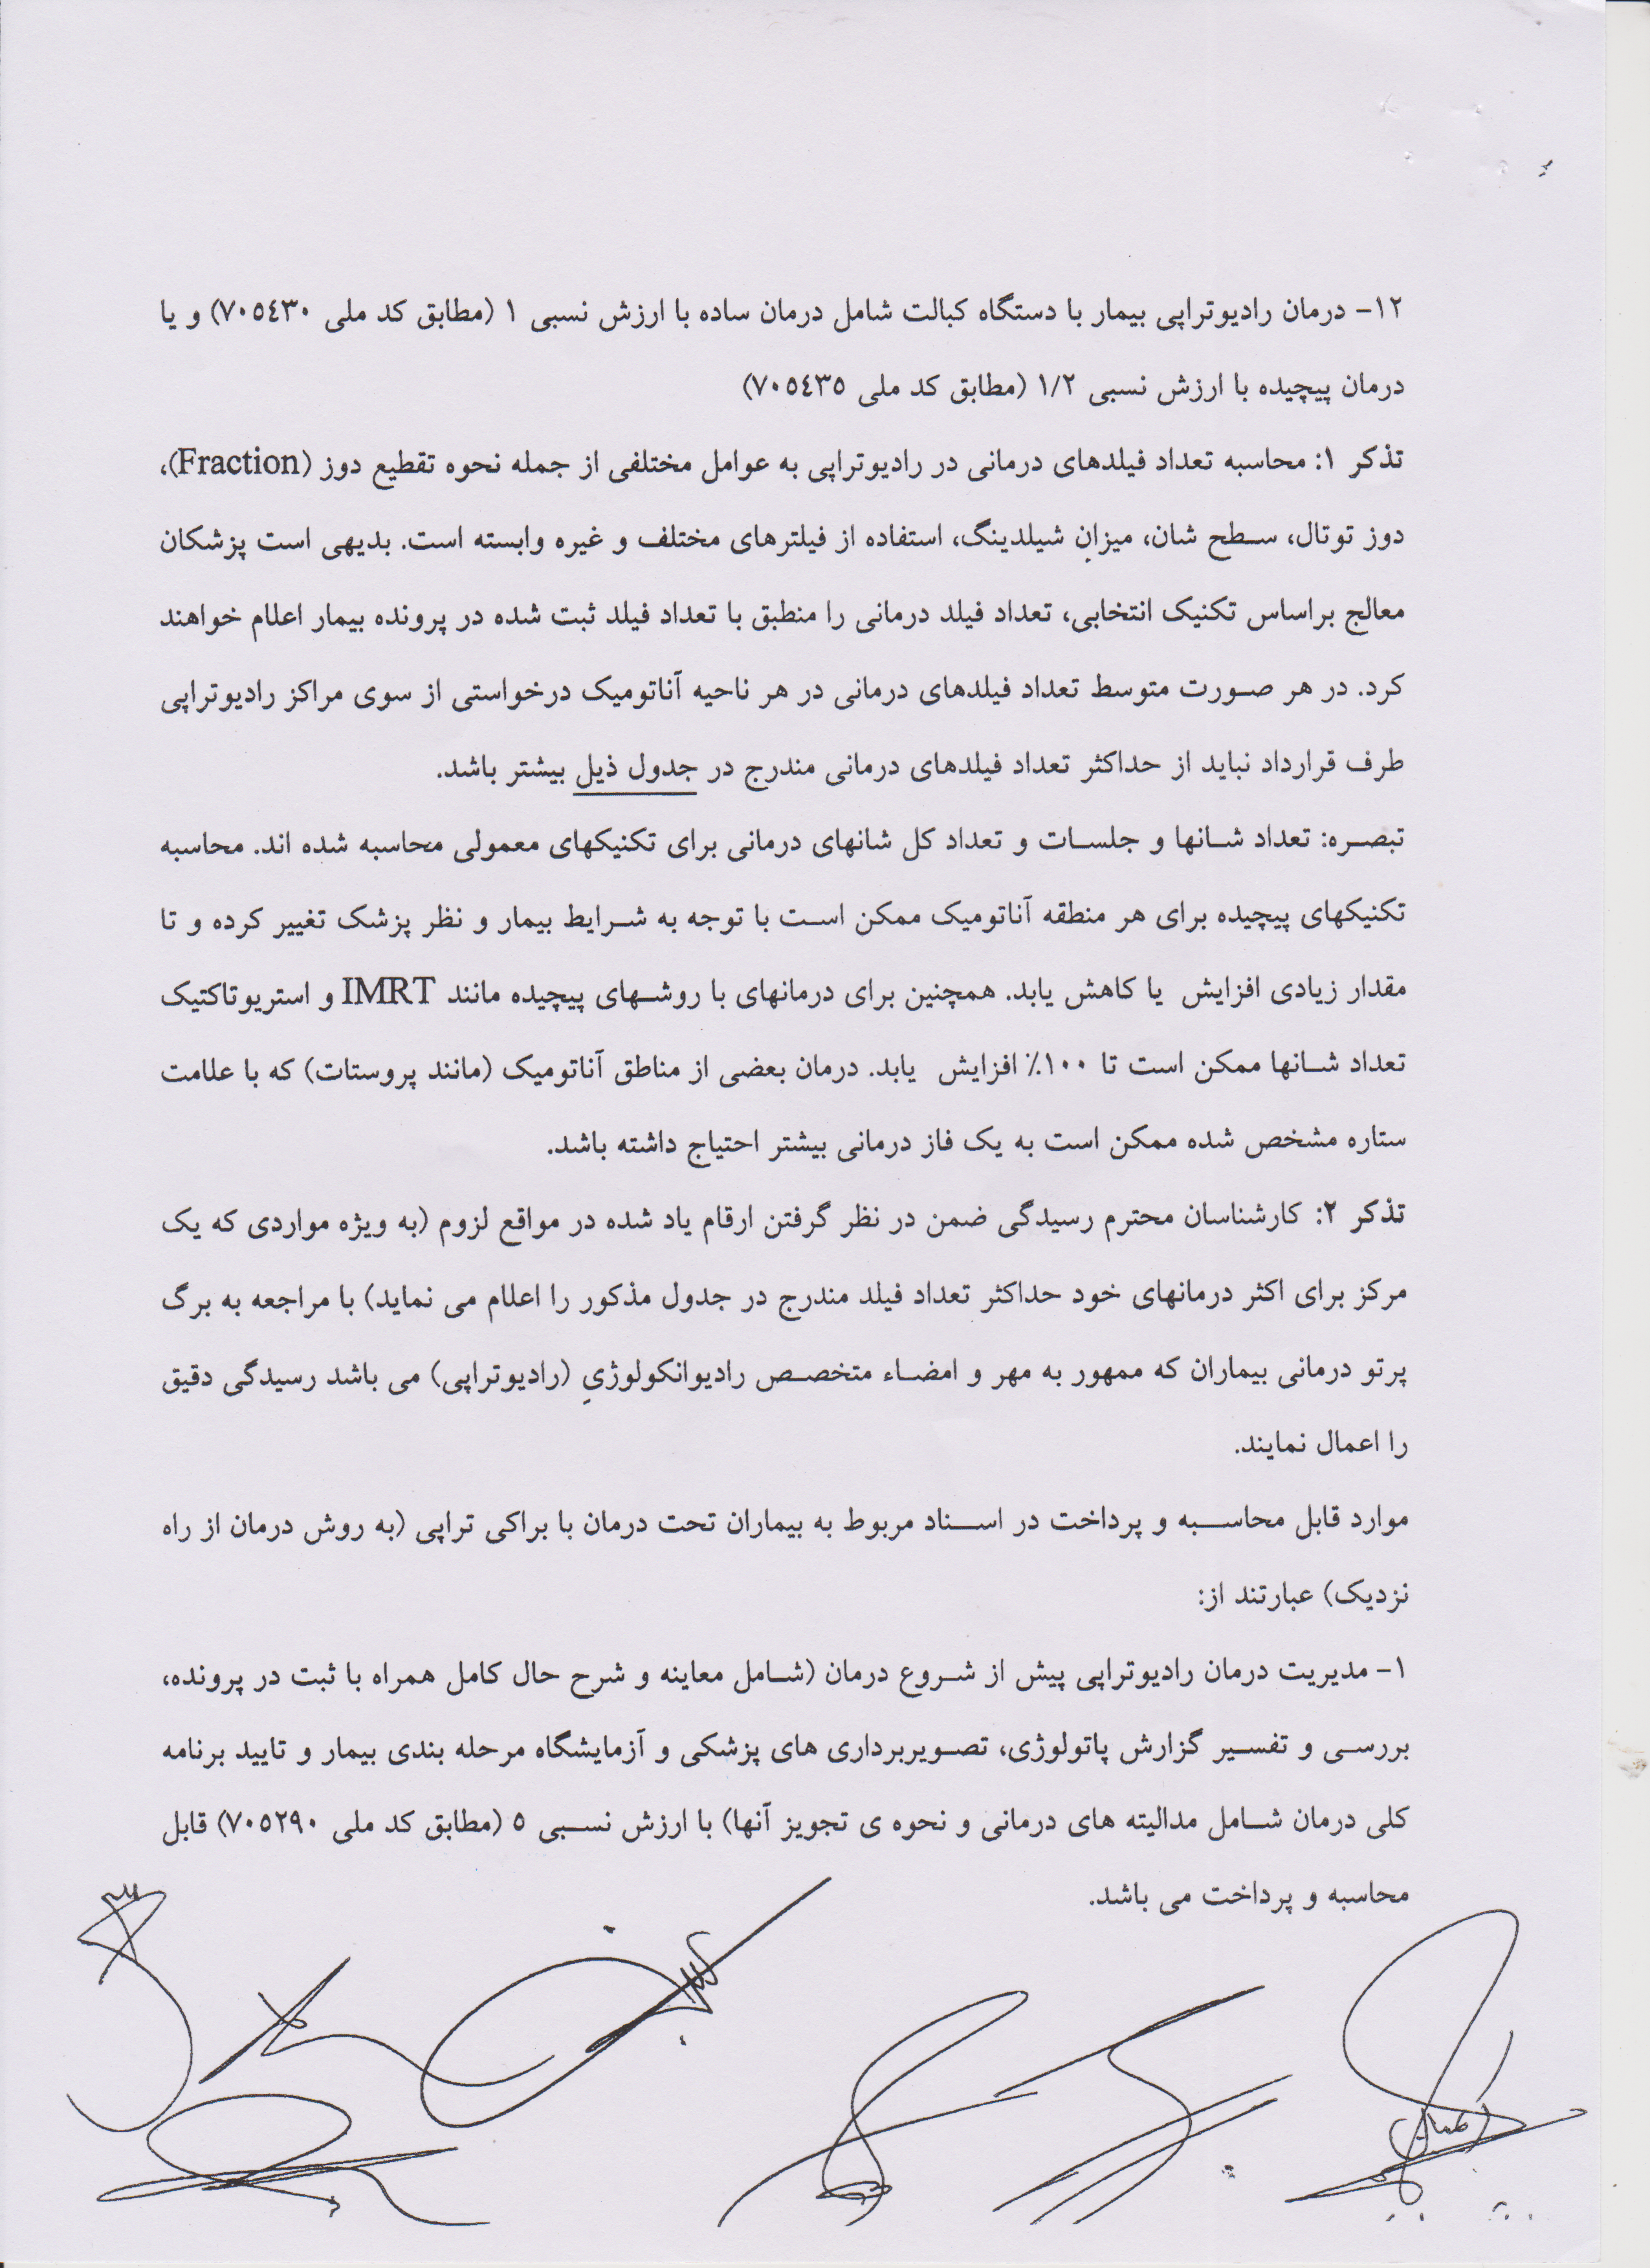 ۱۲- درمان رادیوتراپی بیمار با دستگاه کبالت شامل درمان ساده با ارزش نسبی ۱ (مطابق کد ملی ۷۰۵۴۳۰) و یا
درمان پیچیده با ارزش نسبی ۱/۲ (مطابق کد ملی ۷۰۵۴۳۵)
تذکر ۱: محاسبه تعداد فیلدهای درمانی در رادیوتراپی به عوامل مختلفی از جمله نحوه تقطیع دوز (Fraction)،
دوز توتال، سطح شان، میزان شیلدینگ، استفاده از فیلترهای مختلف و غیره وابسته است. بدیهی است پزشکان
معالج براساس تکنیک انتخابی، تعداد فیلد درمانی را منطبق با تعداد فیلد ثبت شده در پرونده بیمار اعلام خواهند
کرد. در هر صورت متوسط تعداد فیلدهای درمانی در هر ناحیه آناتومیک درخواستی از سوی مراکز رادیوتراپی
طرف قرارداد نباید از حداکثر تعداد فیلدهای درمانی مندرج در جدول ذیل بیشتر باشد.
تبصره: تعداد شانها و جلسات و تعداد کل شانهای درمانی برای تکنیکهای معمولی محاسبه شده اند. محاسبه
تکنیکهای پیچیده برای هر منطقه آناتومیک ممکن است با توجه به شرایط بیمار و نظر پزشک تغییر کرده و تا
مقدار زیادی افزایش یا کاهش یابد. همچنین برای درمانهای با روشهای پیچیده مانند IMRT و استریوتاکتیک
تعداد شانها ممکن است تا ۱۰۰٪ افزایش یابد. درمان بعضی از مناطق آناتومیک (مانند پروستات) که با علامت
ستاره مشخص شده ممکن است به یک فاز درمانی بیشتر احتیاج داشته باشد.
تذکر ۲: کارشناسان محترم رسیدگی ضمن در نظر گرفتن ارقام یاد شده در مواقع لزوم (به ویژه مواردی که یک
مرکز برای اکثر درمانهای خود حداکثر تعداد فیلد مندرج در جدول مذکور را اعلام می نماید) با مراجعه به برگ
پرتو درمانی بیماران که ممهور به مهر و امضاء متخصص رادیوانکولوژیِ (رادیوتراپی) می باشد رسیدگی دقیق
را اعمال نمایند.
موارد قابل محاسبه و پرداخت در اسناد مربوط به بیماران تحت درمان با براکی تراپی (به روش درمان از راه
نزدیک) عبارتند از:
۱- مدیریت درمان رادیوتراپی پیش از شروع درمان (شامل معاینه و شرح حال کامل همراه با ثبت در پرونده،
بررسی و تفسیر گزارش پاتولوژی، تصویربرداری های پزشکی و آزمایشگاه مرحله بندی بیمار و تایید برنامه
کلی درمان شامل مدالیته های درمانی و نحوه ی تجویز آنها) با ارزش نسبی ۵ (مطابق کد ملی ۷۰۵۲۹۰) قابل
محاسبه و پرداخت می باشد.